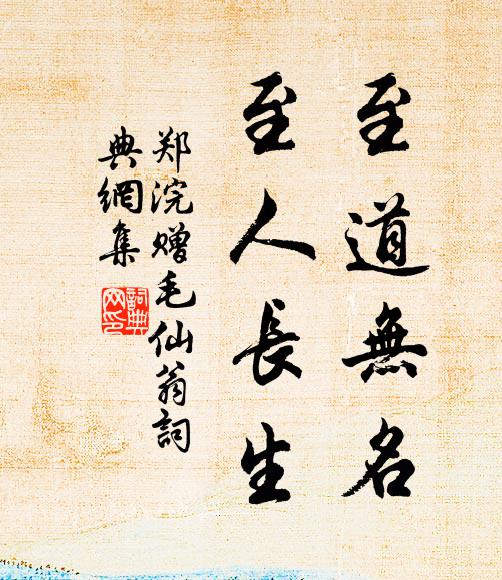 至道無名
至人長生
郑浣赠毛仙翁詞
典網集
詞典
网印